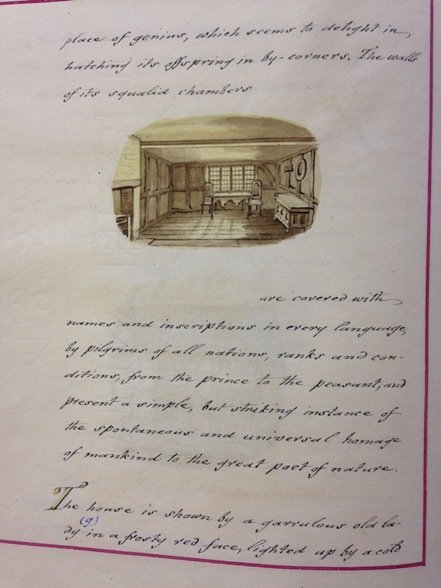 place of genius, which seems to delight in
hatching its offspring in by-corners. The walls
of its squalid chambers
are covered with
names and inscriptions in every language,
by pilgrims of all nations, ranks and con-
ditions, from the prince to the peasant; and
present a simple, but striking instance of
the spontaneous and universal homage
of mankind to the great poet of nature.
The house is shown by a garrulous old la-
(g)
dy in a frosty red face, lighted up by a cold